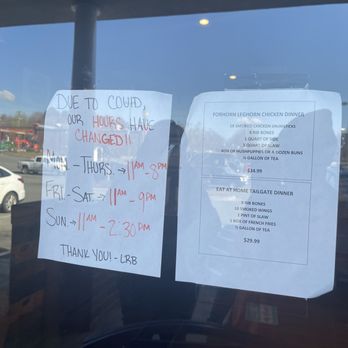 DUE TO COVID,
OUR HOURS HAVE
CHANGED!!
MON. - THURS. → 11AM - 8PM
FRI. - SAT. → 11AM - 9PM
SUN. → 11AM - 2:30PM
THANK YOU! - LRB
FORHORN LEGHORN CHICKEN DINNER
18 SMOKED CHICKEN DRUMSTICKS
6 RIB BONES
1 QUART OF SIDE
1 QUART OF SLAW
BOX OF HUSHPUPPIES OR A DOZEN BUNS
½ GALLON OF TEA
$34.99
EAT AT HOME TAILGATE DINNER
RIB BONES
10 SMOKED WINGS
1 PINT OF SLAW
1 BOX OF FRENCH FRIES
½ GALLON OF TEA
$29.99